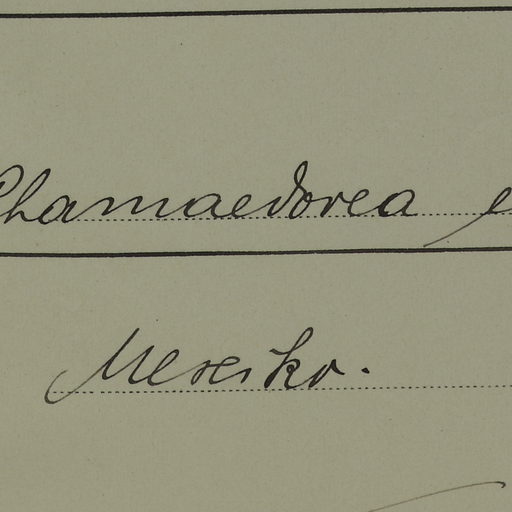 Chamaedorea e
Mexiko.